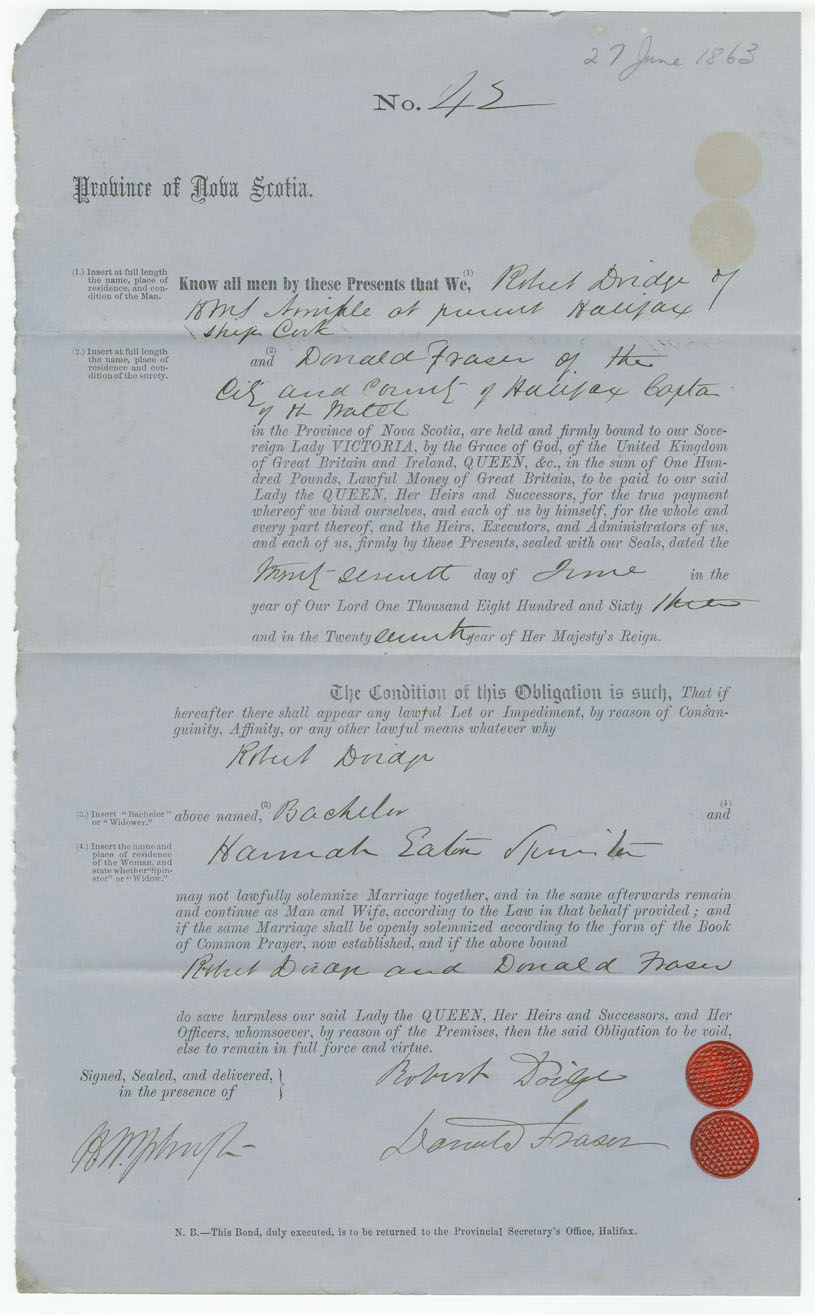 27 June 1863
No. 42
Province of Nova Scotia.
(1.) Insert at full length
the name, place of
residence, and con-
dition of the Man.
Know all men by these Presents that We, (1) Robert Doidge of
HMS Nimble at present Halifax
ships Cook
(2.) Insert at full length
the name, place of
residence and con-
dition of the surety.
and (2) Donald Fraser of the
City and County of Halifax Captn
of the Watch
in the Province of Nova Scotia, are held and firmly bound to our Sove-
reign Lady VICTORIA, by the Grace of God, of the United Kingdom
of Great Britain and Ireland, QUEEN, &c., in the sum of One Hun-
dred Pounds, Lawful Money of Great Britain, to be paid to our said
Lady the QUEEN, Her Heirs and Successors, for the true payment
whereof we bind ourselves, and each of us by himself, for the whole and
every part thereof, and the Heirs, Executors, and Administrators of us,
and each of us, firmly by these Presents, sealed with our Seals, dated the
Twenty seventh day of June in the
year of Our Lord One Thousand Eight Hundred and Sixty three
and in the Twenty seventh year of Her Majesty's Reign.
The Condition of this Obligation is such, That if
hereafter there shall appear any lawful Let or Impediment, by reason of Consan-
guinity, Affinity, or any other lawful means whatever why
Robert Doidge
(3.) Insert "Bachelor"
or "Widower."
above named, (3) Bachelor and (4)
(4.) Insert the name and
place of residence
of the Woman, and
state whether "Spin-
ster" or "Widow."
Hannah Eaton Spinster
may not lawfully solemnize Marriage together, and in the same afterwards remain
and continue as Man and Wife, according to the Law in that behalf provided; and
if the same Marriage shall be openly solemnized according to the form of the Book
of Common Prayer, now established, and if the above bound
Robert Doidge and Donald Fraser
do save harmless our said Lady the QUEEN, Her Heirs and Successors, and Her
Officers, whomsoever, by reason of the Premises, then the said Obligation to be void,
else to remain in full force and virtue.
Signed, Sealed, and delivered,
in the presence of
Robert Doidge
Donald Fraser
N. B.—This Bond, duly executed, is to be returned to the Provincial Secretary's Office, Halifax.